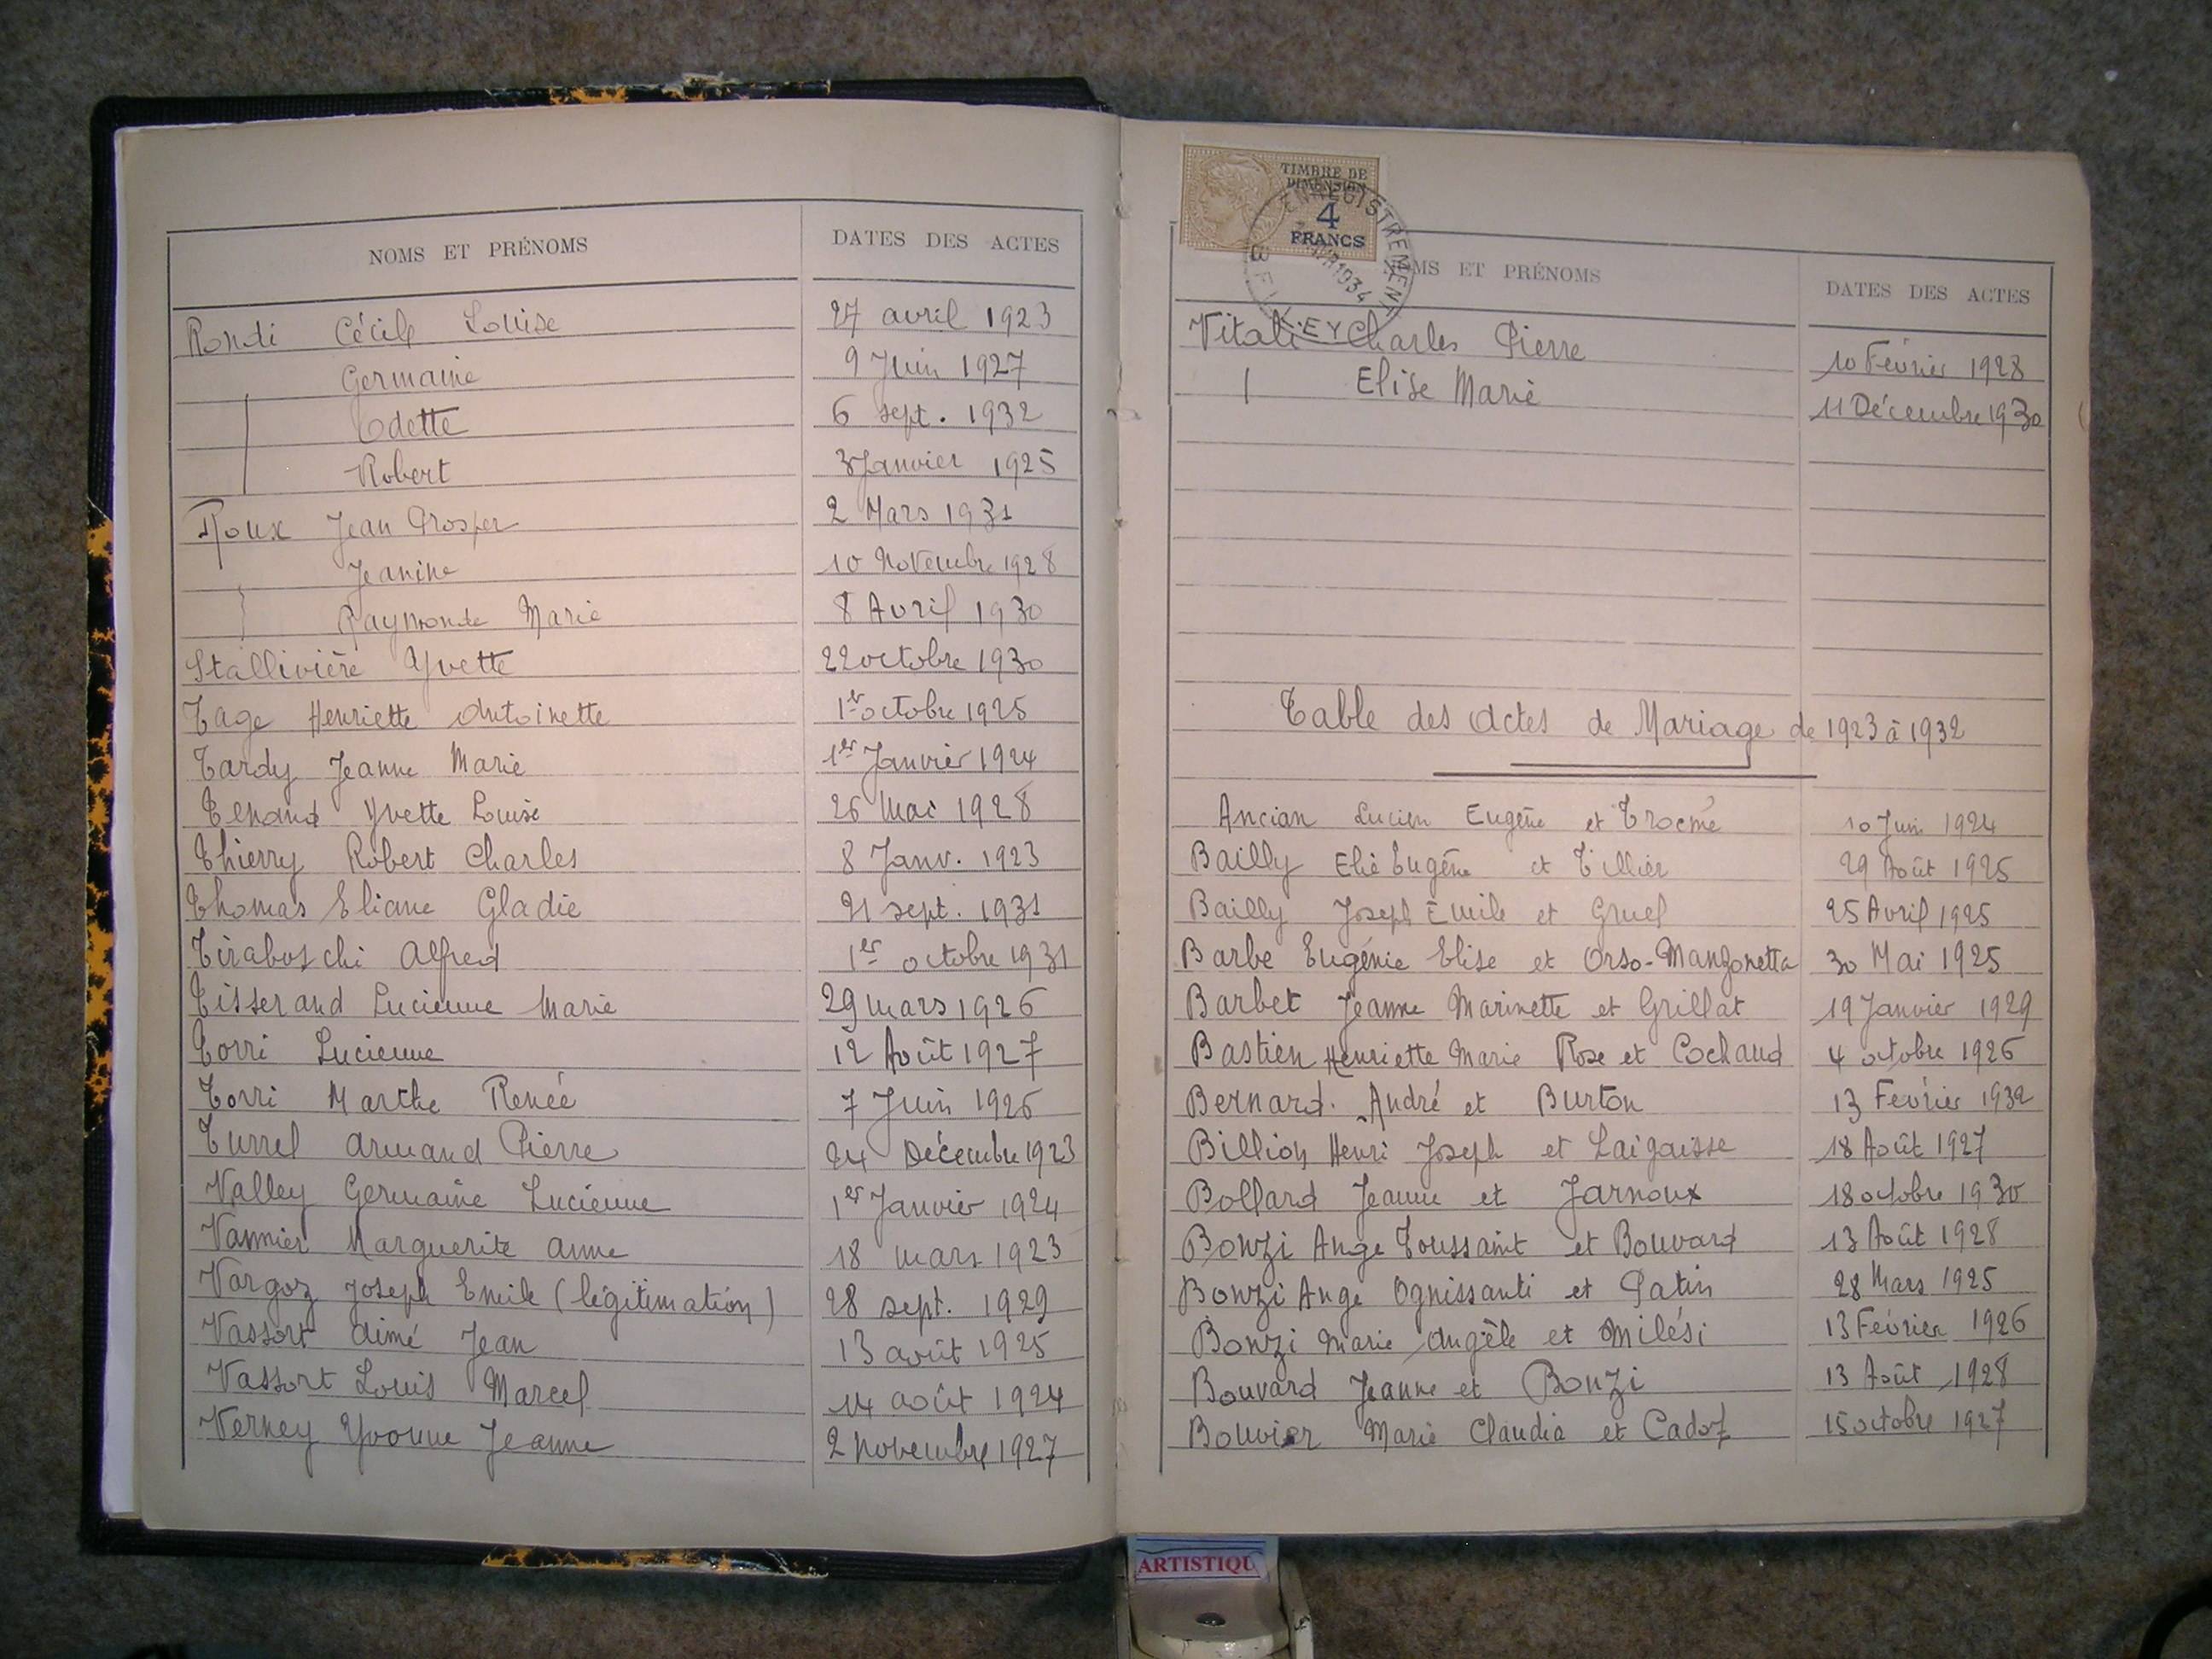 NOMS ET PRÉNOMS DATES DES ACTES
Rondi Cécile Louise 27 avril 1923
Germaine 9 Juin 1927
Odette 6 sept. 1932
Robert 3 Janvier 1925
Roux Jean Prosper 2 Mars 1931
Jeanine 10 Novembre 1928
Raymonde Marie 8 Avril 1930
Stallivière Yvette 22 octobre 1930
Tage Henriette Antoinette 1er octobre 1925
Tardy Jeanne Marie 1er Janvier 1924
Tenand Yvette Louise 26 Mai 1928
Thierry Robert Charles 8 Janv. 1923
Thomas Eliane Gladie 21 sept. 1931
Tiraboschi Alfred 1er octobre 1931
Tisserand Lucienne Marie 29 mars 1926
Torri Lucienne 12 Août 1927
Torri Marthe Renée 7 Juin 1926
Turrel Armand Pierre 24 Décembre 1923
Valley Germaine Lucienne 1er Janvier 1924
Vannier Marguerite Anne 18 mars 1923
Vargoz Joseph Emile (légitimation) 28 sept. 1929
Vassort Aimé Jean 13 août 1925
Vassort Louis Marcel 14 août 1924
Verney Yvonne Jeanne 2 novembre 1927
TIMBRE DE
DIMENSION
4
FRANCS
ENREGISTREMENT
1934
NOMS ET PRÉNOMS DATES DES ACTES
Vitali Charles Pierre 10 Février 1928
Elise Marie 11 Décembre 1930
Table des Actes de Mariage de 1923 à 1932
Ancian Lucien Eugène et Trocmé 10 Juin 1924
Bailly Elie Eugène et Tillier 29 Août 1925
Bailly Joseph Emile et Gruel 25 Avril 1925
Barbe Eugénie Elise et Orso-Manzonetta 30 Mai 1925
Barbet Jeanne Marinette et Grillat 19 Janvier 1929
Bastien Henriette Marie Rose et Cochaud 4 octobre 1926
Bernard. André et Burton 13 Février 1932
Billion Henri Joseph et Laigaisse 18 Août 1927
Bollard Jeanne et Jarnoux 18 octobre 1930
Bonzi Ange Toussaint et Bouvard 13 Août 1928
Bonzi Ange Ognissanti et Patin 28 Mars 1925
Bonzi Marie Angèle et Milési 13 Février 1926
Bouvard Jeanne et Bonzi 13 Août 1928
Bouvier Marie Claudia et Cadot 15 octobre 1927
ARTISTIQU